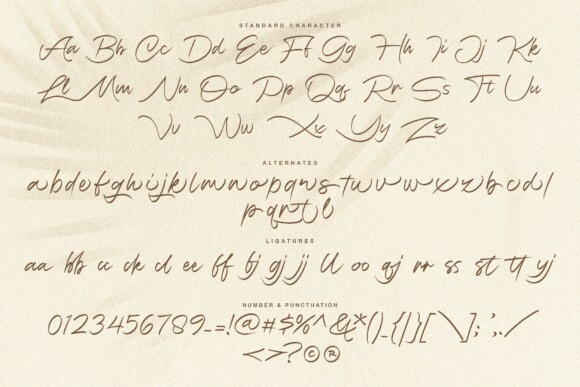 STANDARD CHARACTER
Aa Bb Cc Dd Ee Ff Gg Hh Ii Jj Kk
Ll Mm Nn Oo Pp Qq Rr Ss Tt Uu
Vv Ww Xx Yy Zz
ALTERNATES
abdefghijklmnopqrstuvwxyzbcdl
pqrtl
LIGATURES
aa bb cc ck cl ee ff fj gj jj ll oo qj rr ss st tt yj
NUMBER & PUNCTUATION
0123456789-=!@#$%^&*()_{|}[\];',./
<>?©®